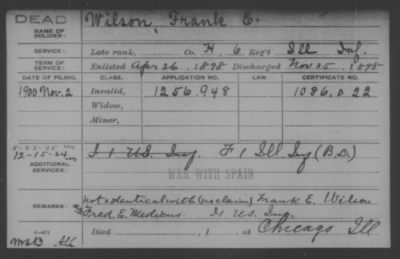 DEAD
NAME OF SOLDIER: Wilson, Frank E.
SERVICE: Late rank, Co. H, 6 Reg't Ill Inf.
TERM OF SERVICE: Enlisted Apr 26, 1898 Discharged Nov 25, 1898
DATE OF FILING. CLASS. APPLICATION NO. CERTIFICATE NO.
1900 Nov. 2 Invalid, 1256.948 1086.022
Widow,
Minor,
12-15-24
ADDITIONAL SERVICES: I 1 U.S. Inf. F 1 Ill Inf (B.D.)
WAR WITH SPAIN
REMARKS: not identical with (no claim) Frank E. Wilson
Fred E. Medicus. I 1 U.S. Inf.
Died , 1 , at Chicago Ill